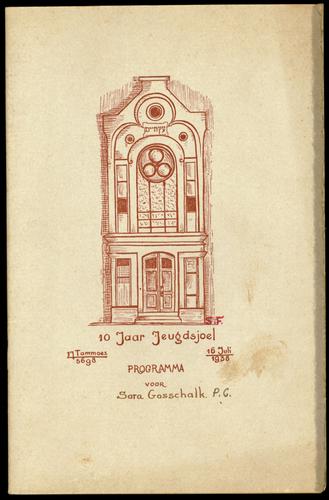 S.F.
10 Jaar Jeugdsjoel
17 Tammoez 16 Juli
5698 1938
PROGRAMMA
VOOR
Sara Gosschalk. P.G.